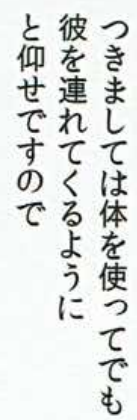 つきましては体を使ってでも
彼を連れてくるように
と仰せですので